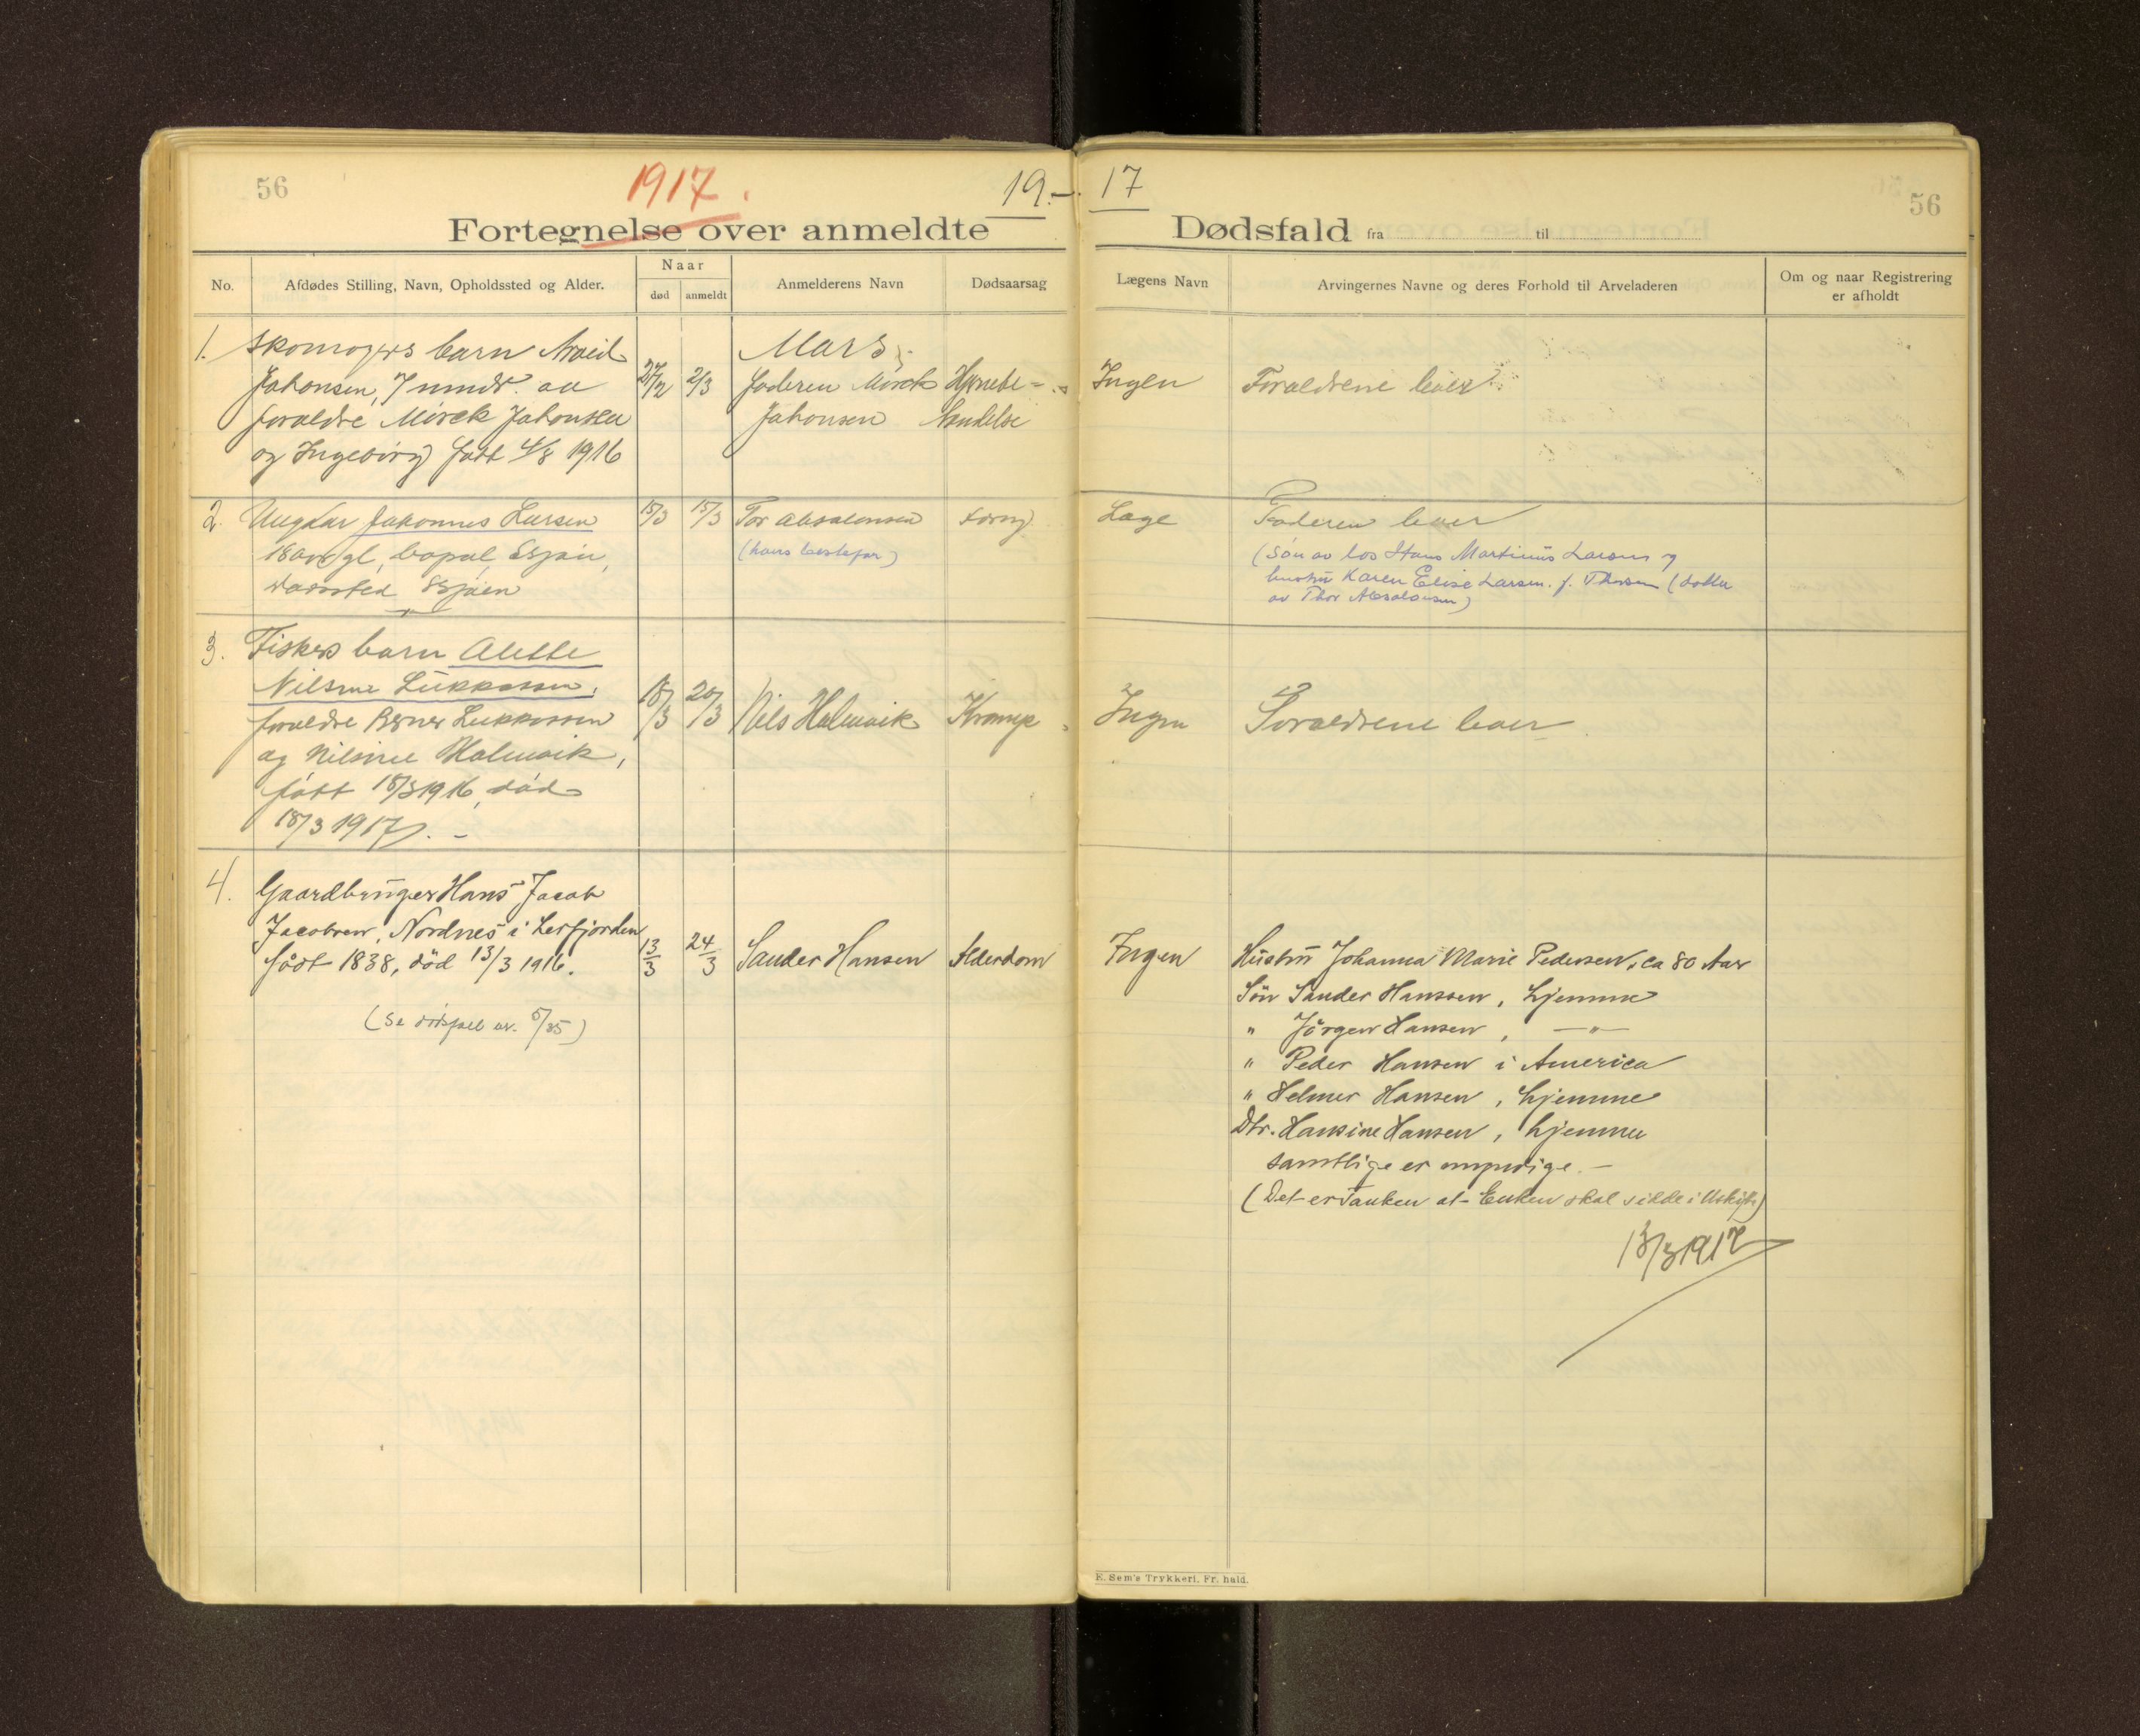 56
1917.
19.-
Fortegnelse over anmeldte
No.
Afdødes Stilling, Navn, Opholdssted og Alder.
Naar
død
anmeldt
Anmelderens Navn
Dødsaarsag
Mars
1. Skomagers barn Arveid
Johansen, 7 mndr. av
foraldre Mörck Johansen
og Ingeborg født 4/8 1916
27/2
2/3
faderen Mörck
Johansen
2. Ungkar Johannes Larsen
18 aar gl, bopæl,
dødssted
15/3
15/3
Tor Absalonsen
(hans bestefar)
tæring
3. Fiskers barn Alette
Nilsine Lukkassen,
foraldre Berner Lukkassen
og Nilsine Holmvik,
født 18/3 1916, død
18/3 1917. -
18/3
20/3
Nils Holmvik
Krampe
4. Gaardbruger Hans Jacob
Jacobsen, Nordnes i Lerfjorden
født 1838, död 13/3 1916.
(Se dødsfal nr. 5/35)
13/3
24/3
Sander Hansen
Alderdom
17
56
Dødsfald fra til
Lægens Navn
Arvingernes Navne og deres Forhold til Arveladeren
Om og naar Registrering
er afholdt
Ingen
Foraldrene lever
Læge
Faderen lever
(Søn av los Hans Martinus Larsen og
hustru Karen Elise Larsen. f. Thorsen (datter
av Thor Absalonsen)
Ingen
Foraldrene lever
Ingen
Hustru Johanna Marie Pedersen, ca 80 Aar
Sön Sander Hanssen, hjemme
" Jörgen Hansen, — " —
" Peder Hansen i America
" Helmer Hansen, hjemme
Dtr. Hansine Hansen, hjemme
samtlige er myndige. -
(Det er Tanken at Enken skal sidde i Uskifte)
13/3 1917
E. Sem's Trykkeri, Fr. hald.